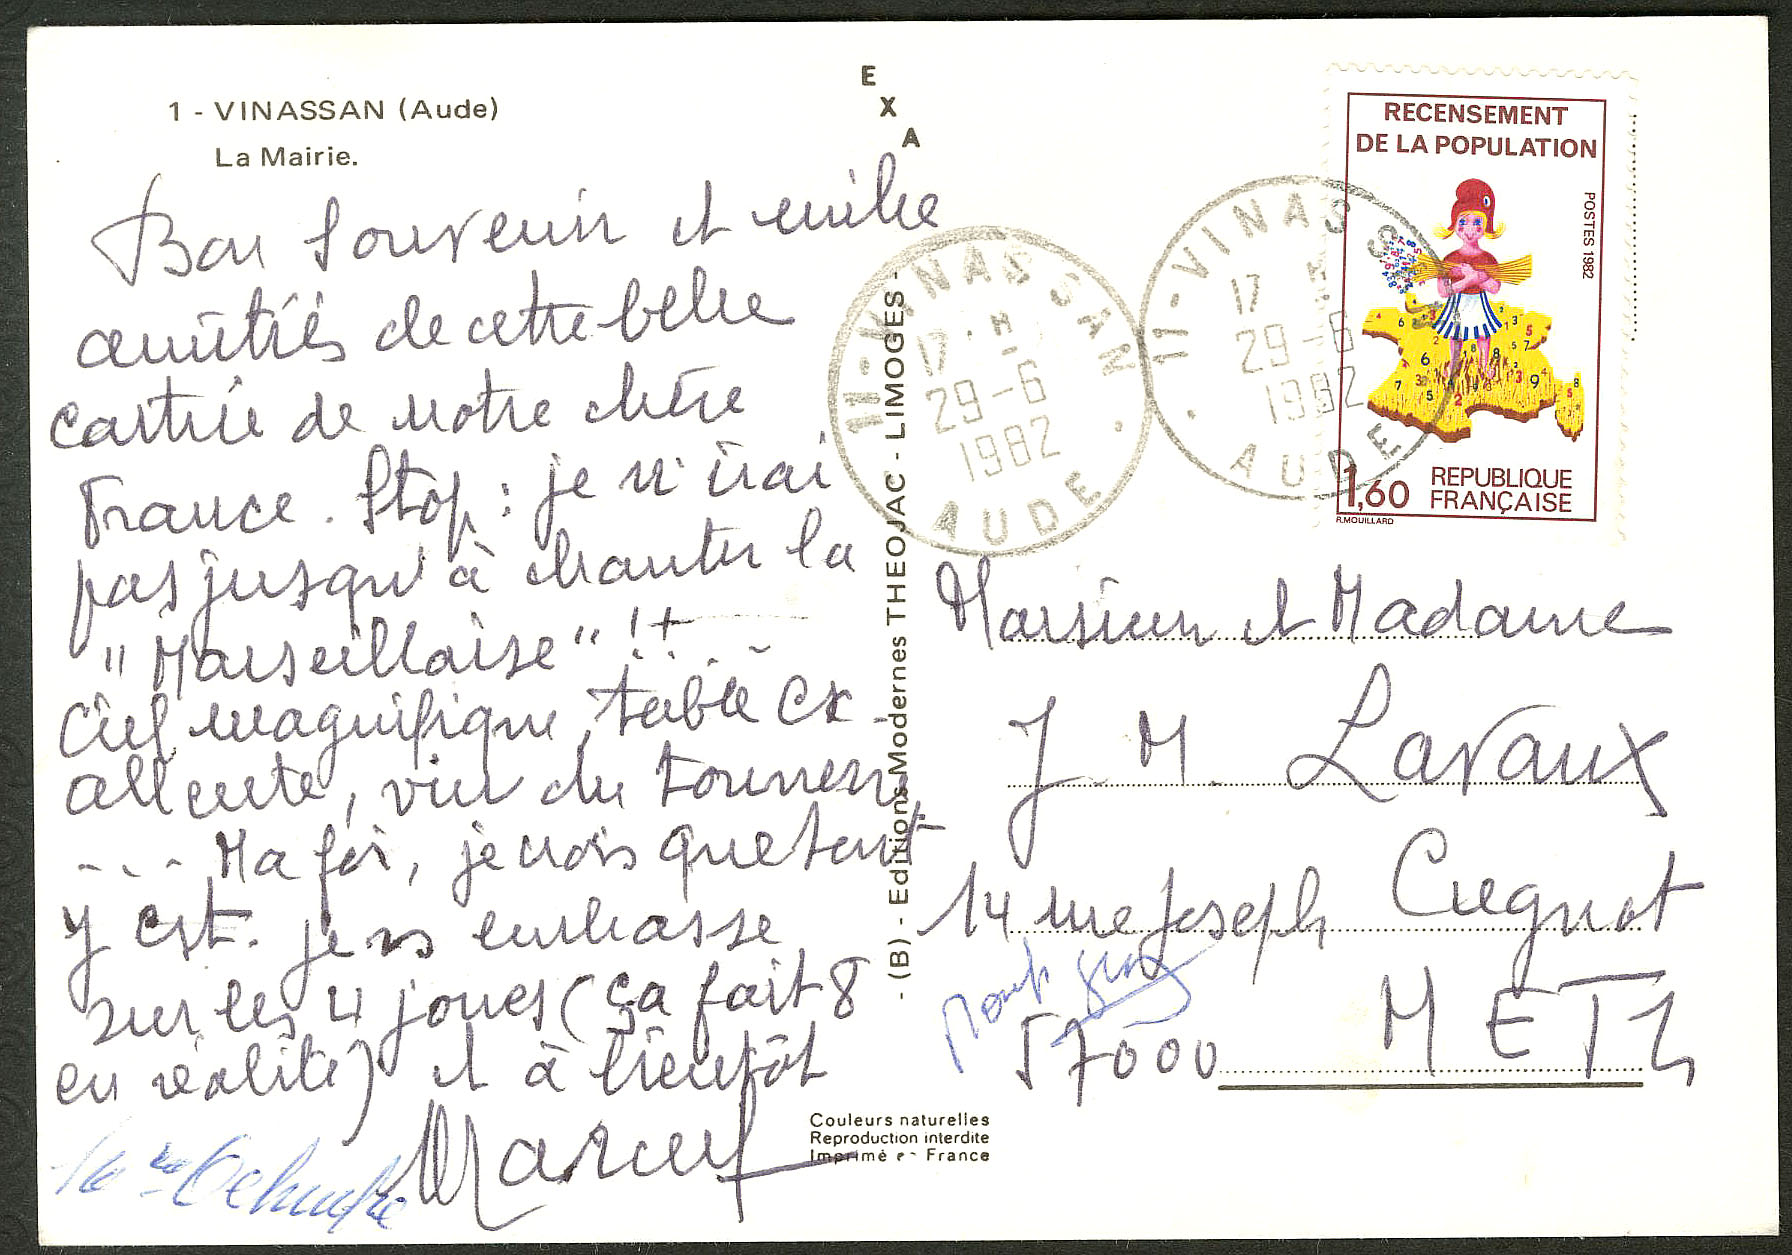 1 - VINASSAN (Aude)
La Mairie.
EXA
Bon souvenir et mille
amitiés de cette belle
partie de notre chère
France. Stop : je n'irai
pas jusqu'à chanter la
"Marseillaise" !!
Ciel magnifique, table ex-
cellente, vin du tonnerre
... Ma foi, je crois que tout
y est. Je vs embrasse
sur les 4 joues (ça fait 8
en réalité) et à bientôt
Marcel
- (B) - Editions Modernes THEOJAC - LIMOGES -
Couleurs naturelles
Reproduction interdite
Imprimé en France
11 - VINASSAN
17 H
29-6
1982
AUDE
11 - VINASSAN
17 H
29-6
1982
AUDE
RECENSEMENT
DE LA POPULATION
POSTES 1982
1,60 REPUBLIQUE
FRANÇAISE
R.MOUILLARD
Monsieur et Madame
J. M. Lavaux
14 rue Joseph Cugnot
57000 METZ